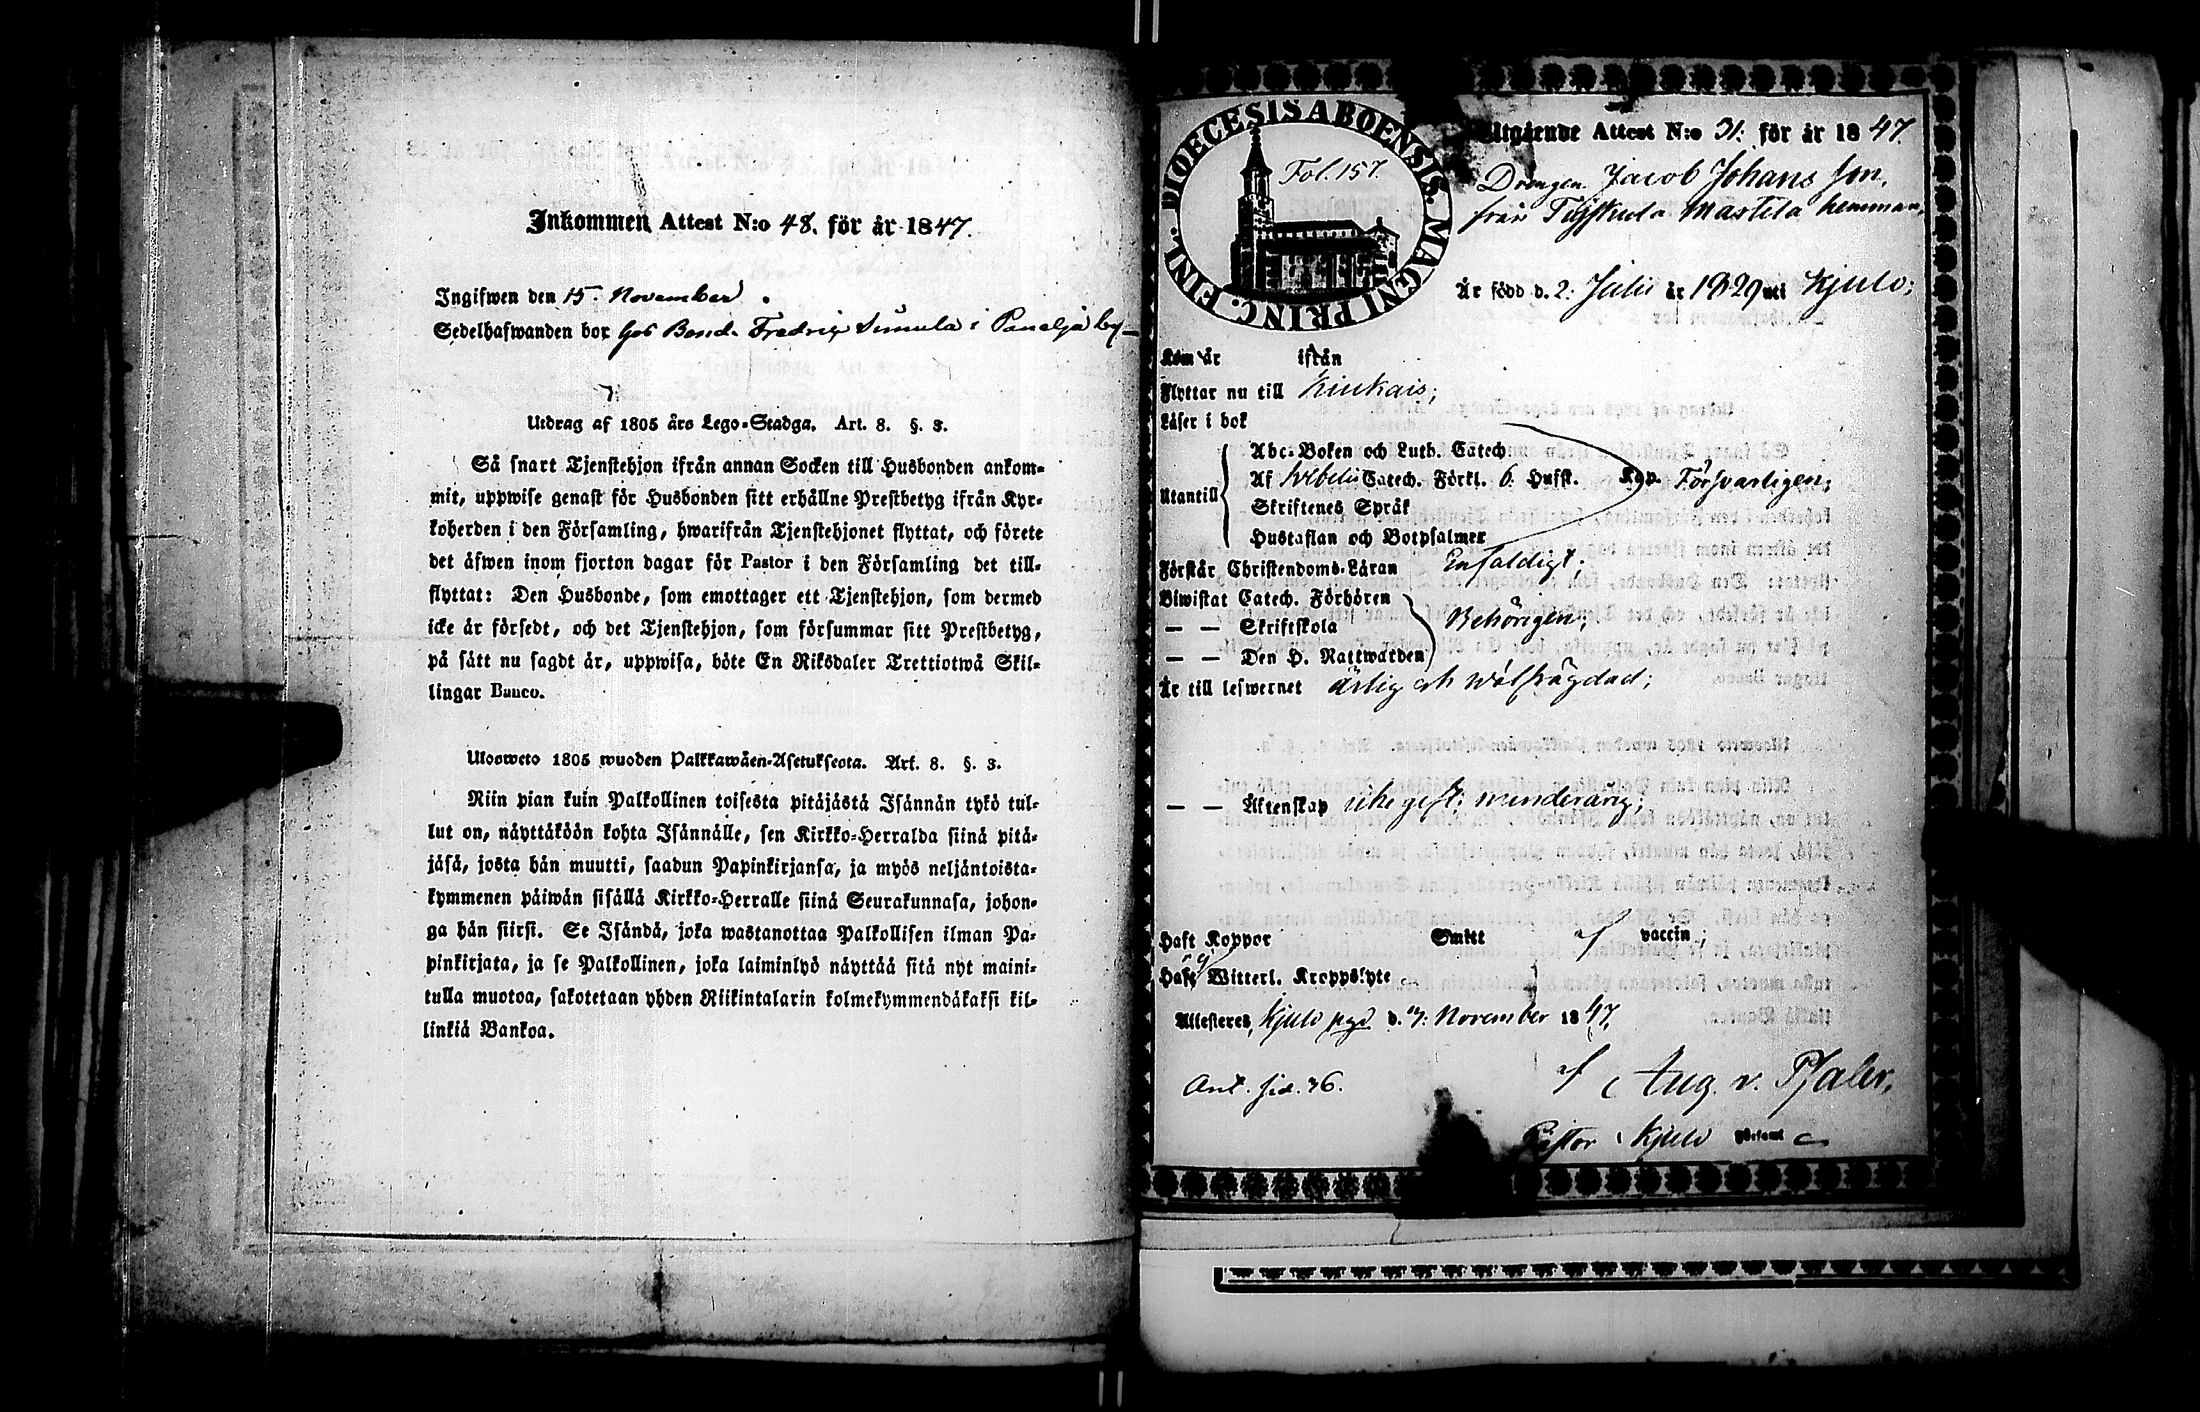 Inkommen Attest N:o 48. för år 1847.
Ingifwen den 15. November.
Sedelhafwanden bor hos Bond. Fredrig Simula i Panelja by
Utdrag af 1805 års Lego-Stadga. Art. 8. §. 3.
Så snart Tjenstehjon ifrån annan Socken till Husbonden ankom-
mit, uppwise genast för Husbonden sitt erhållne Prestbetyg ifrån Kyr-
koherden i den Församling, hwarifrån Tjenstehjonet flyttat, och förete
det äfwen inom fjorton dagar för Pastor i den Församling det till-
flyttat: Den Husbonde, som emottager ett Tjenstehjon, som dermed
icke är försedt, och det Tjenstehjon, som försummar sitt Prestbetyg,
på sätt nu sagdt är, uppwisa, böte En Riksdaler Trettiotwå Skil-
lingar Banco.
Ulosweto 1805 wuoden Palkkawäen-Asetuksesta. Art. 8. §. 3.
Niin pian kuin Palkollinen toisesta pitäjästä Isännän tykö tul-
lut on, näyttäköön kohta Isännälle, sen Kirkko-Herralda siinä pitä-
jäsä, josta hän muutti, saadun Papinkirjansa, ja myös neljäntoista-
kymmenen päiwän sisällä Kirkko-Herralle siinä Seurakunnasa, johon-
ga hän siirsi. Se Isändä, joka wastanottaa Palkollisen ilman Pa-
pinkirjata, ja se Palkollinen, joka laiminlyö näyttää sitä nyt maini-
tulla muotoa, sakotetaan yhden Riikintalarin kolmekymmendäkaksi kil-
linkiä Bankoa.
DIOECESIS ABOENSIS. MAGNI PRINC. FINL.
Fol. 157.
Utgående Attest N:o 31: för år 1847.
Drengen Jacob Johans son,
från Tyfskula Mastela hemman,
Är född d. 2: Julii år 1829 uti Kjulo;
Kom år ifrån
Flyttar nu till Kiukais;
Läser i bok
Utantill
Abc-Boken och Luth. Catech
Af Svebelii Catech. Förkl. 6. Hufst. Kap. Försvarligen;
Skriftenes Språk
Hustaflan och Botpsalmer
Förstår Christendoms-Läran Enfaldigt;
Biwistat Catech. Förhören
— — Skriftskola Behörigen;
— — Den H. Nattwarden
Är till lefwernet ärlig och wälfrägdad;
— — Äktenskap icke gift: minderårig;
Haft Koppor Smitt af vaccin;
Haft ej Witterl. Kroppslyte
Attesteres, Kjulo pgd d. 7: November 1847.
af Aug. v. Pfaler,
Ant. sid. 36.
Pastor i Kjulo Församl